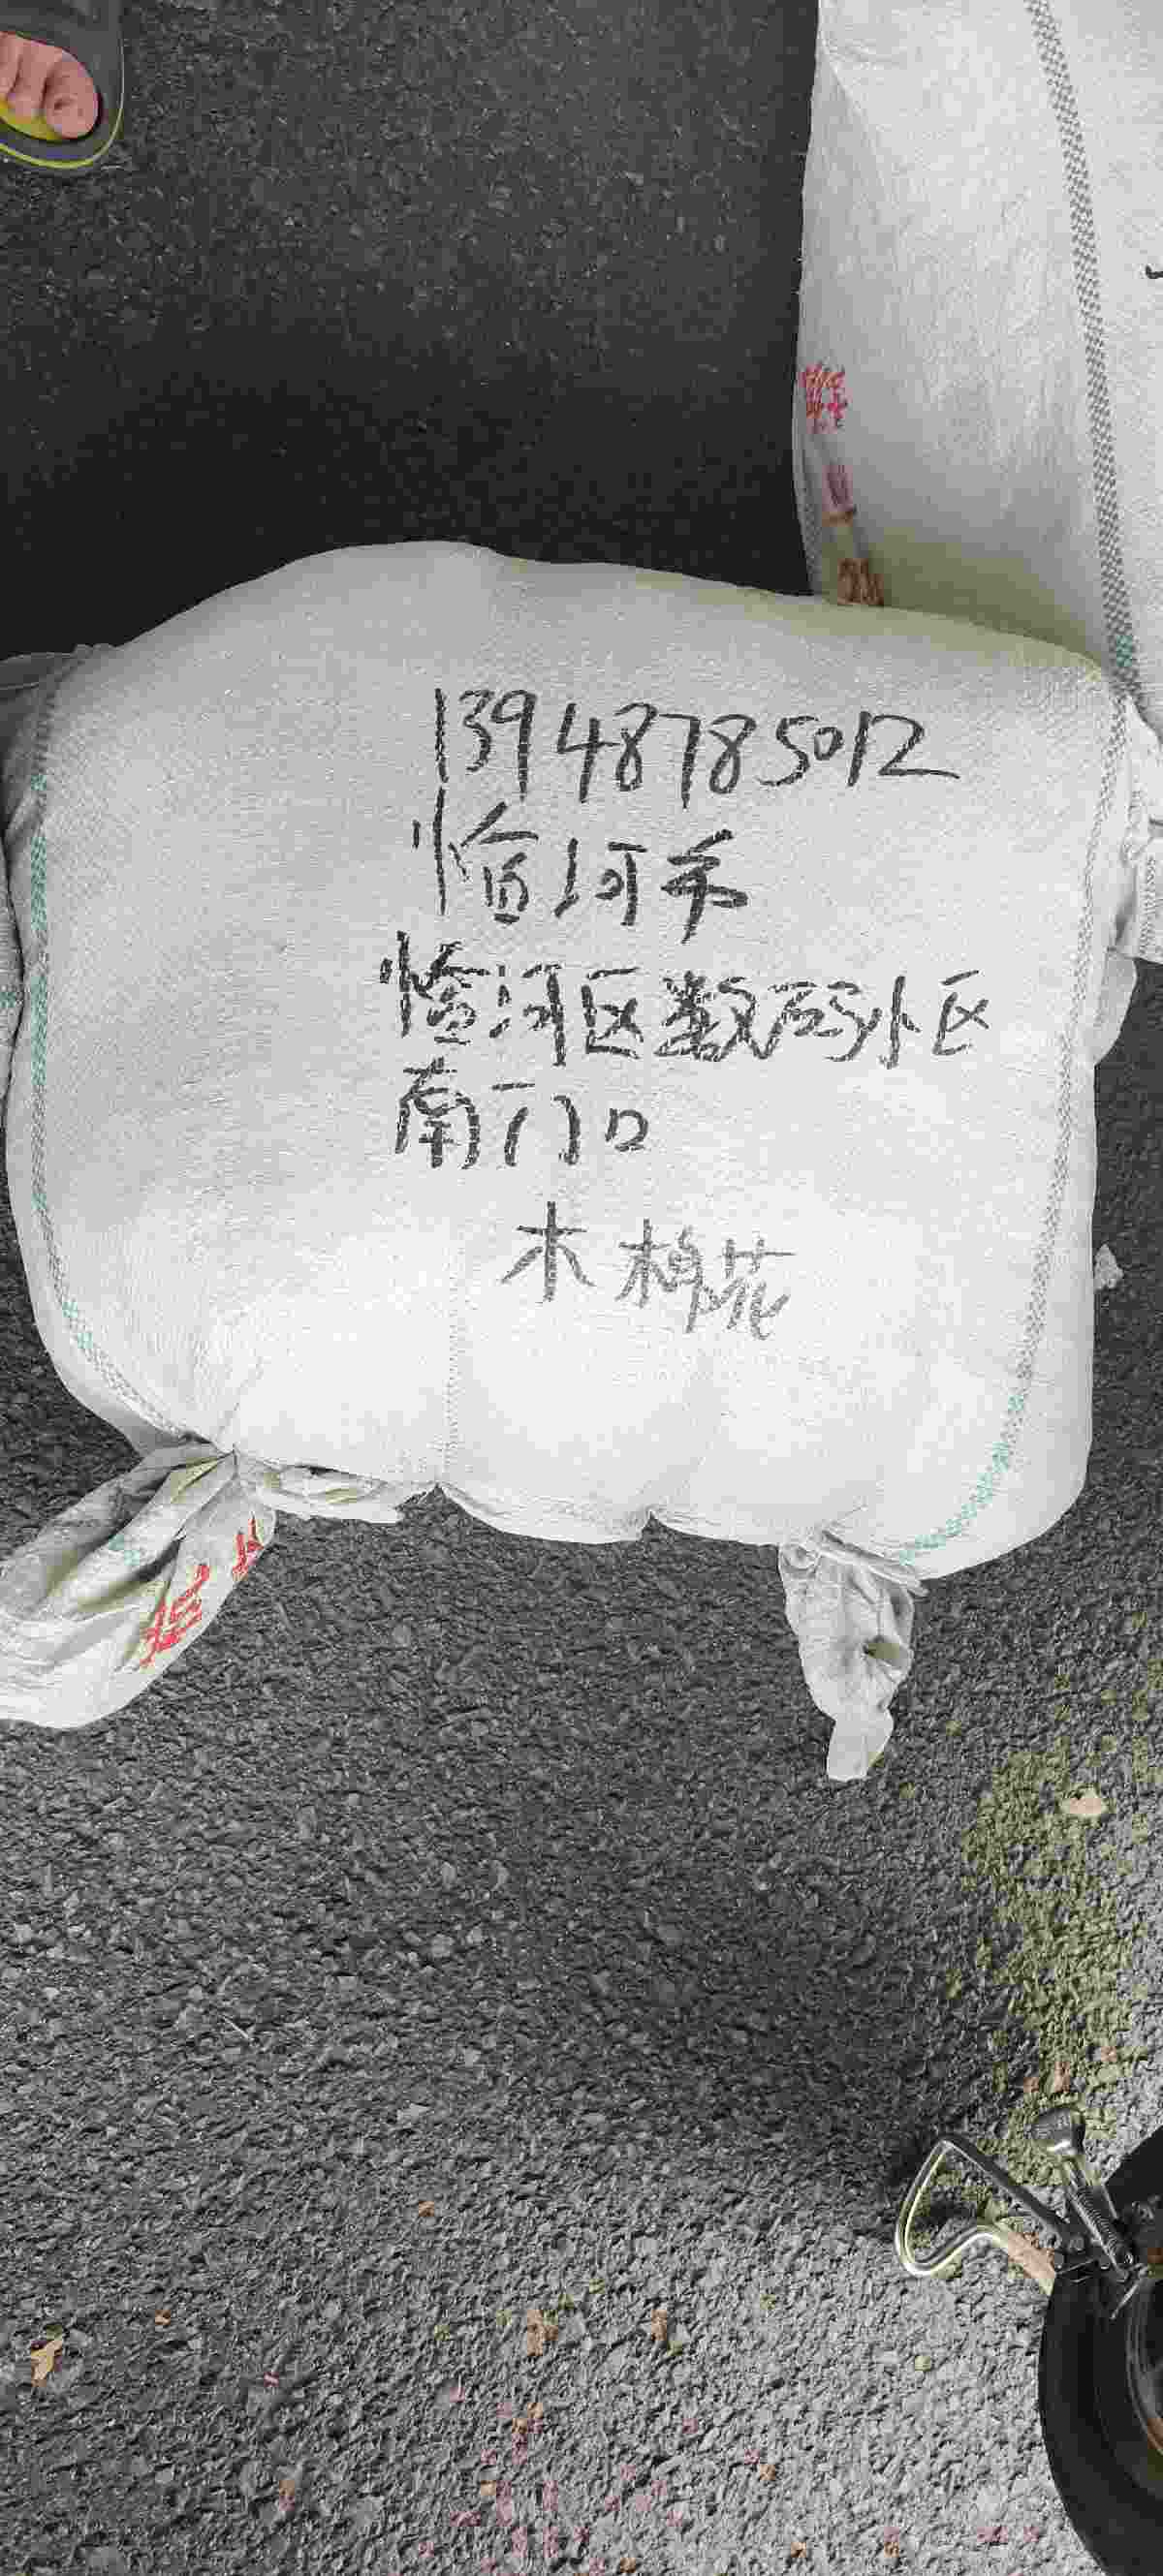 13948785012
临河市
临河区数码小区
南门口
木棉花